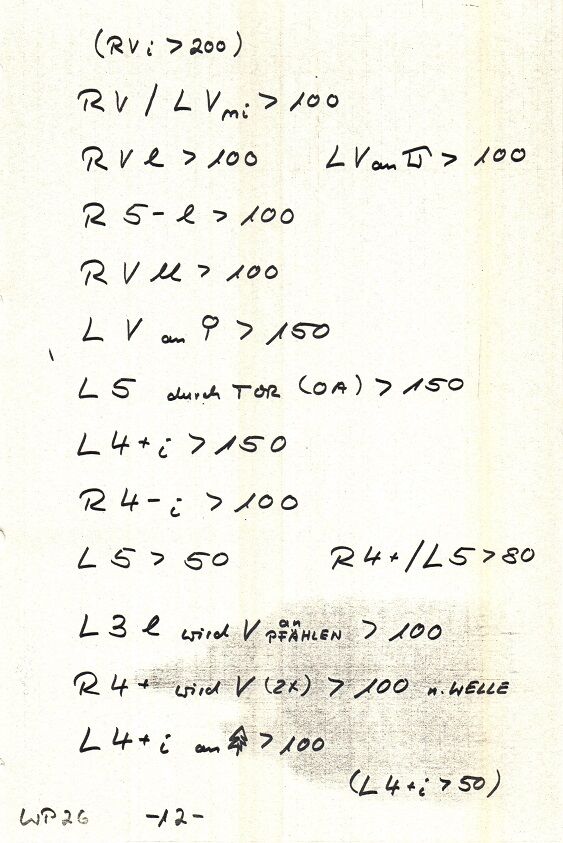 (RVi > 200)
RV / LVmi > 100
RVl > 100 LV an > 100
R 5-l > 100
RV ll > 100
L V an > 150
L 5 durch TOR (OA) > 150
L4+i > 150
R4-i > 100
L 5 > 50 R4+/L5 > 80
L3 l wird V an PFÄHLEN > 100
R4+ wird V (2x) > 100 n. WELLE
L4+i an > 100
(L4+i > 50)
WP26 -12-